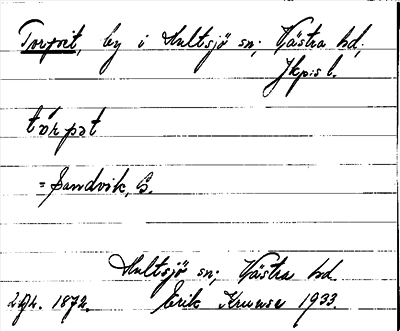 Torpvit, by i Hultsjö sn; Västra hd,
Jkp:s l.
tórpət
= Sandvik, G.
Hultsjö sn; Västra hd.
1872. Erik Kruuse 1933